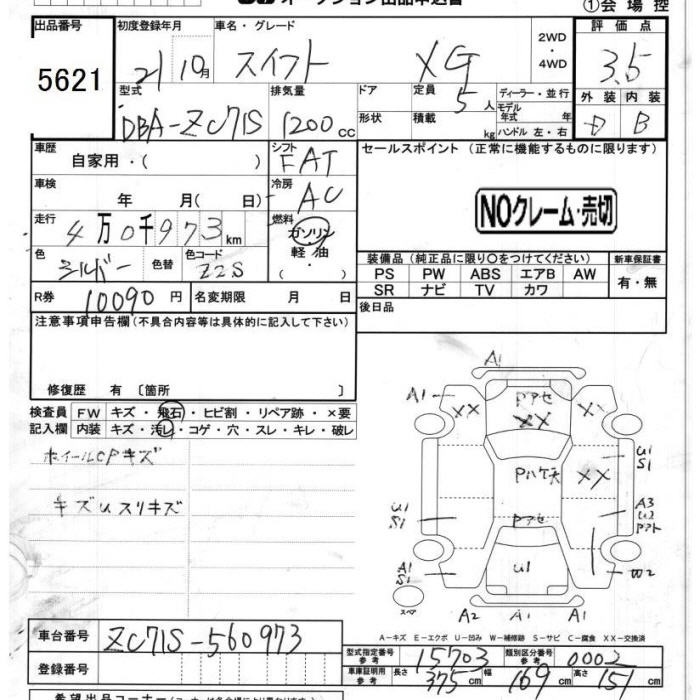 オークション出品申込書
①会場控
出品番号
5621
初度登録年月
21 10月
車名・グレード
スイフト XG
2WD
・
4WD
評価点
3.5
型式
DBA-ZC71S
排気量
1200 CC
ドア
形状
定員
5人
積載
kg
ディーラー・並行
モデル年式 年
ハンドル 左・右
外装 内装
D B
車歴
自家用・( )
シフト
FAT
セールスポイント (正常に機能するものに限ります)
車検
年 月( 日)
冷房
AC
NOクレーム・売切
走行
4万0千973km
燃料
ガソリン
軽油
( ・ )
色
シルバー
色替
色コード
Z2S
装備品(純正品に限り○をつけてください)
新車保証書
PS PW ABS エアB AW
SR ナビ TV カワ
有・無
R券 10090円
名変期限 月 日
後日品
注意事項申告欄(不具合内容等は具体的に記入して下さい)
修復歴 有 〔箇所 〕
検査員 FW キズ・飛石・ヒビ割・リペア跡・×要
記入欄 内装 キズ・汚レ・コゲ・穴・スレ・キレ・破レ
ホイールCPキズ
キズUスリキズ
A1
A1
Pアセ
XX
XX
XX
U1
S1
Pハケ天
XX
A3
U2
U1
S1
Pアセ
A1
S1
U1
W2
スペア
A2
A1
A1
A-キズ E-エクボ U-凹み W-補修跡 S-サビ C-腐食 XX-交換済
車台番号
ZC71S-560973
型式指定番号
参考
15703
類別区分番号
参考
0002
登録番号
車庫証明用
参考
長さ 375cm
幅 169cm
高さ 151cm